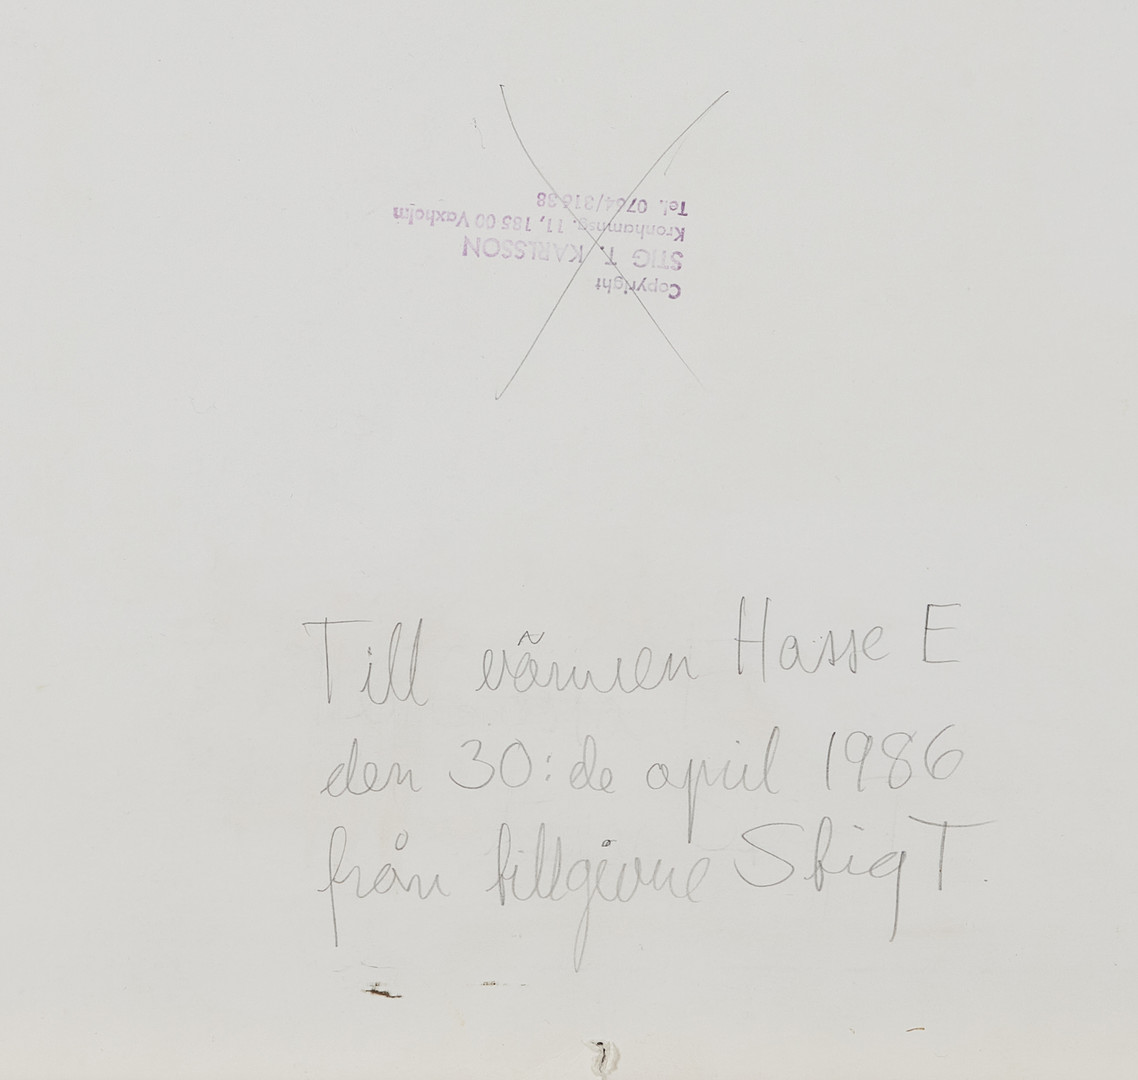 Copyright
STIG T. KARLSSON
Kronhamnsg. 11, 185 00 Vaxholm
Tel. 0764/316 38
Till vännen Hasse E
den 30:de april 1986
från tillgivne Stig T.